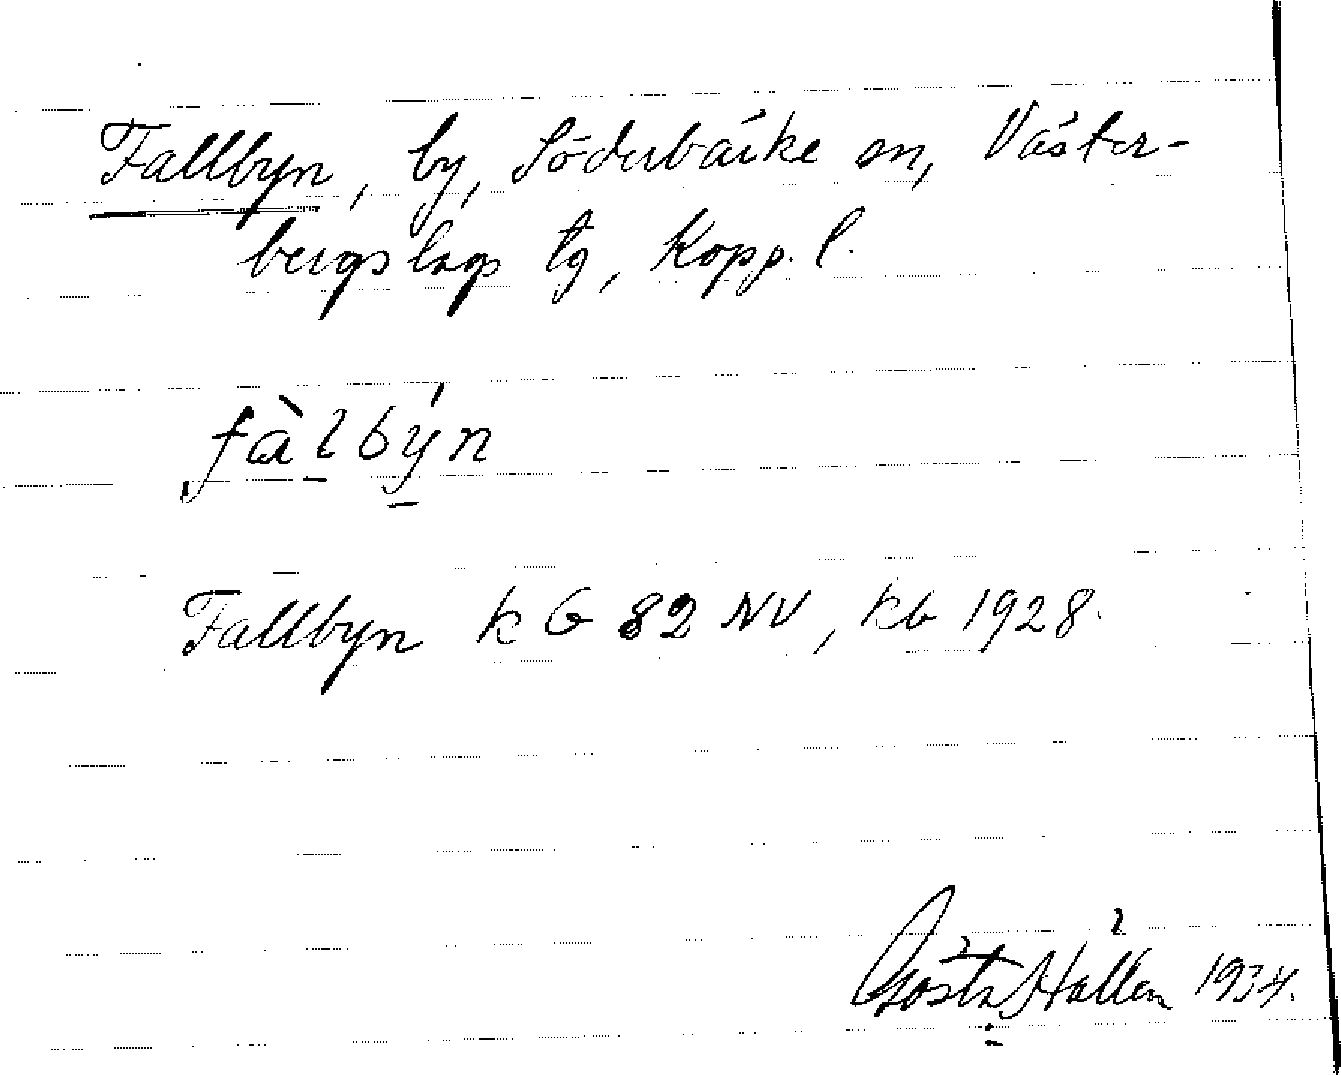 Fallbyn, by, Söderbärke sn, Väster-
bergslags tg, Kopp. l.
fàlbýn
Fallbyn k G 82 NV, kb 1928.
Gösta Hallén 1934.